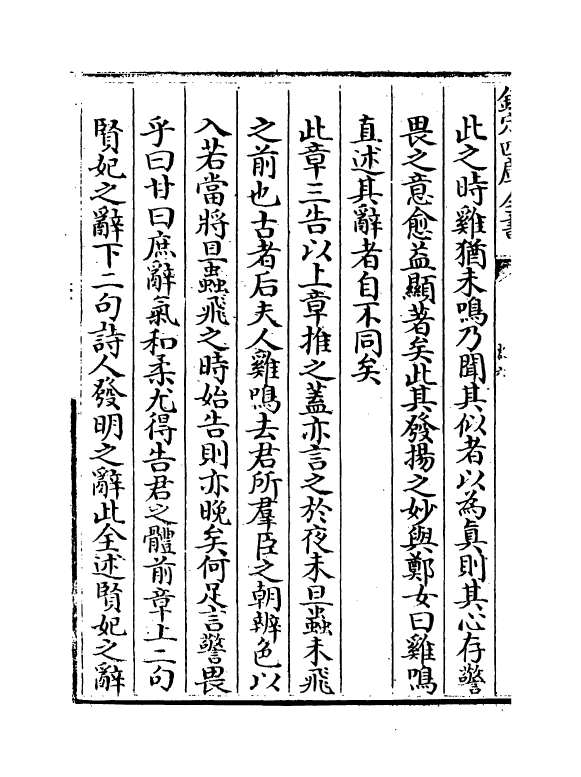 欽定四庫全書
此之時雞猶未鳴乃聞其似者以為真則其心存警
畏之意愈益顯著矣此其發揚之妙與鄭女曰雞鳴
直述其辭者自不同矣
此章三告以上章推之蓋亦言之於夜未旦蟲未飛
之前也古者后夫人雞鳴去君所羣臣之朝辨色以
入若當將旦蟲飛之時始告則亦晚矣何足言警畏
乎曰甘曰庶辭氣和柔尤得告君之體前章上二句
賢妃之辭下二句詩人發明之辭此全述賢妃之辭